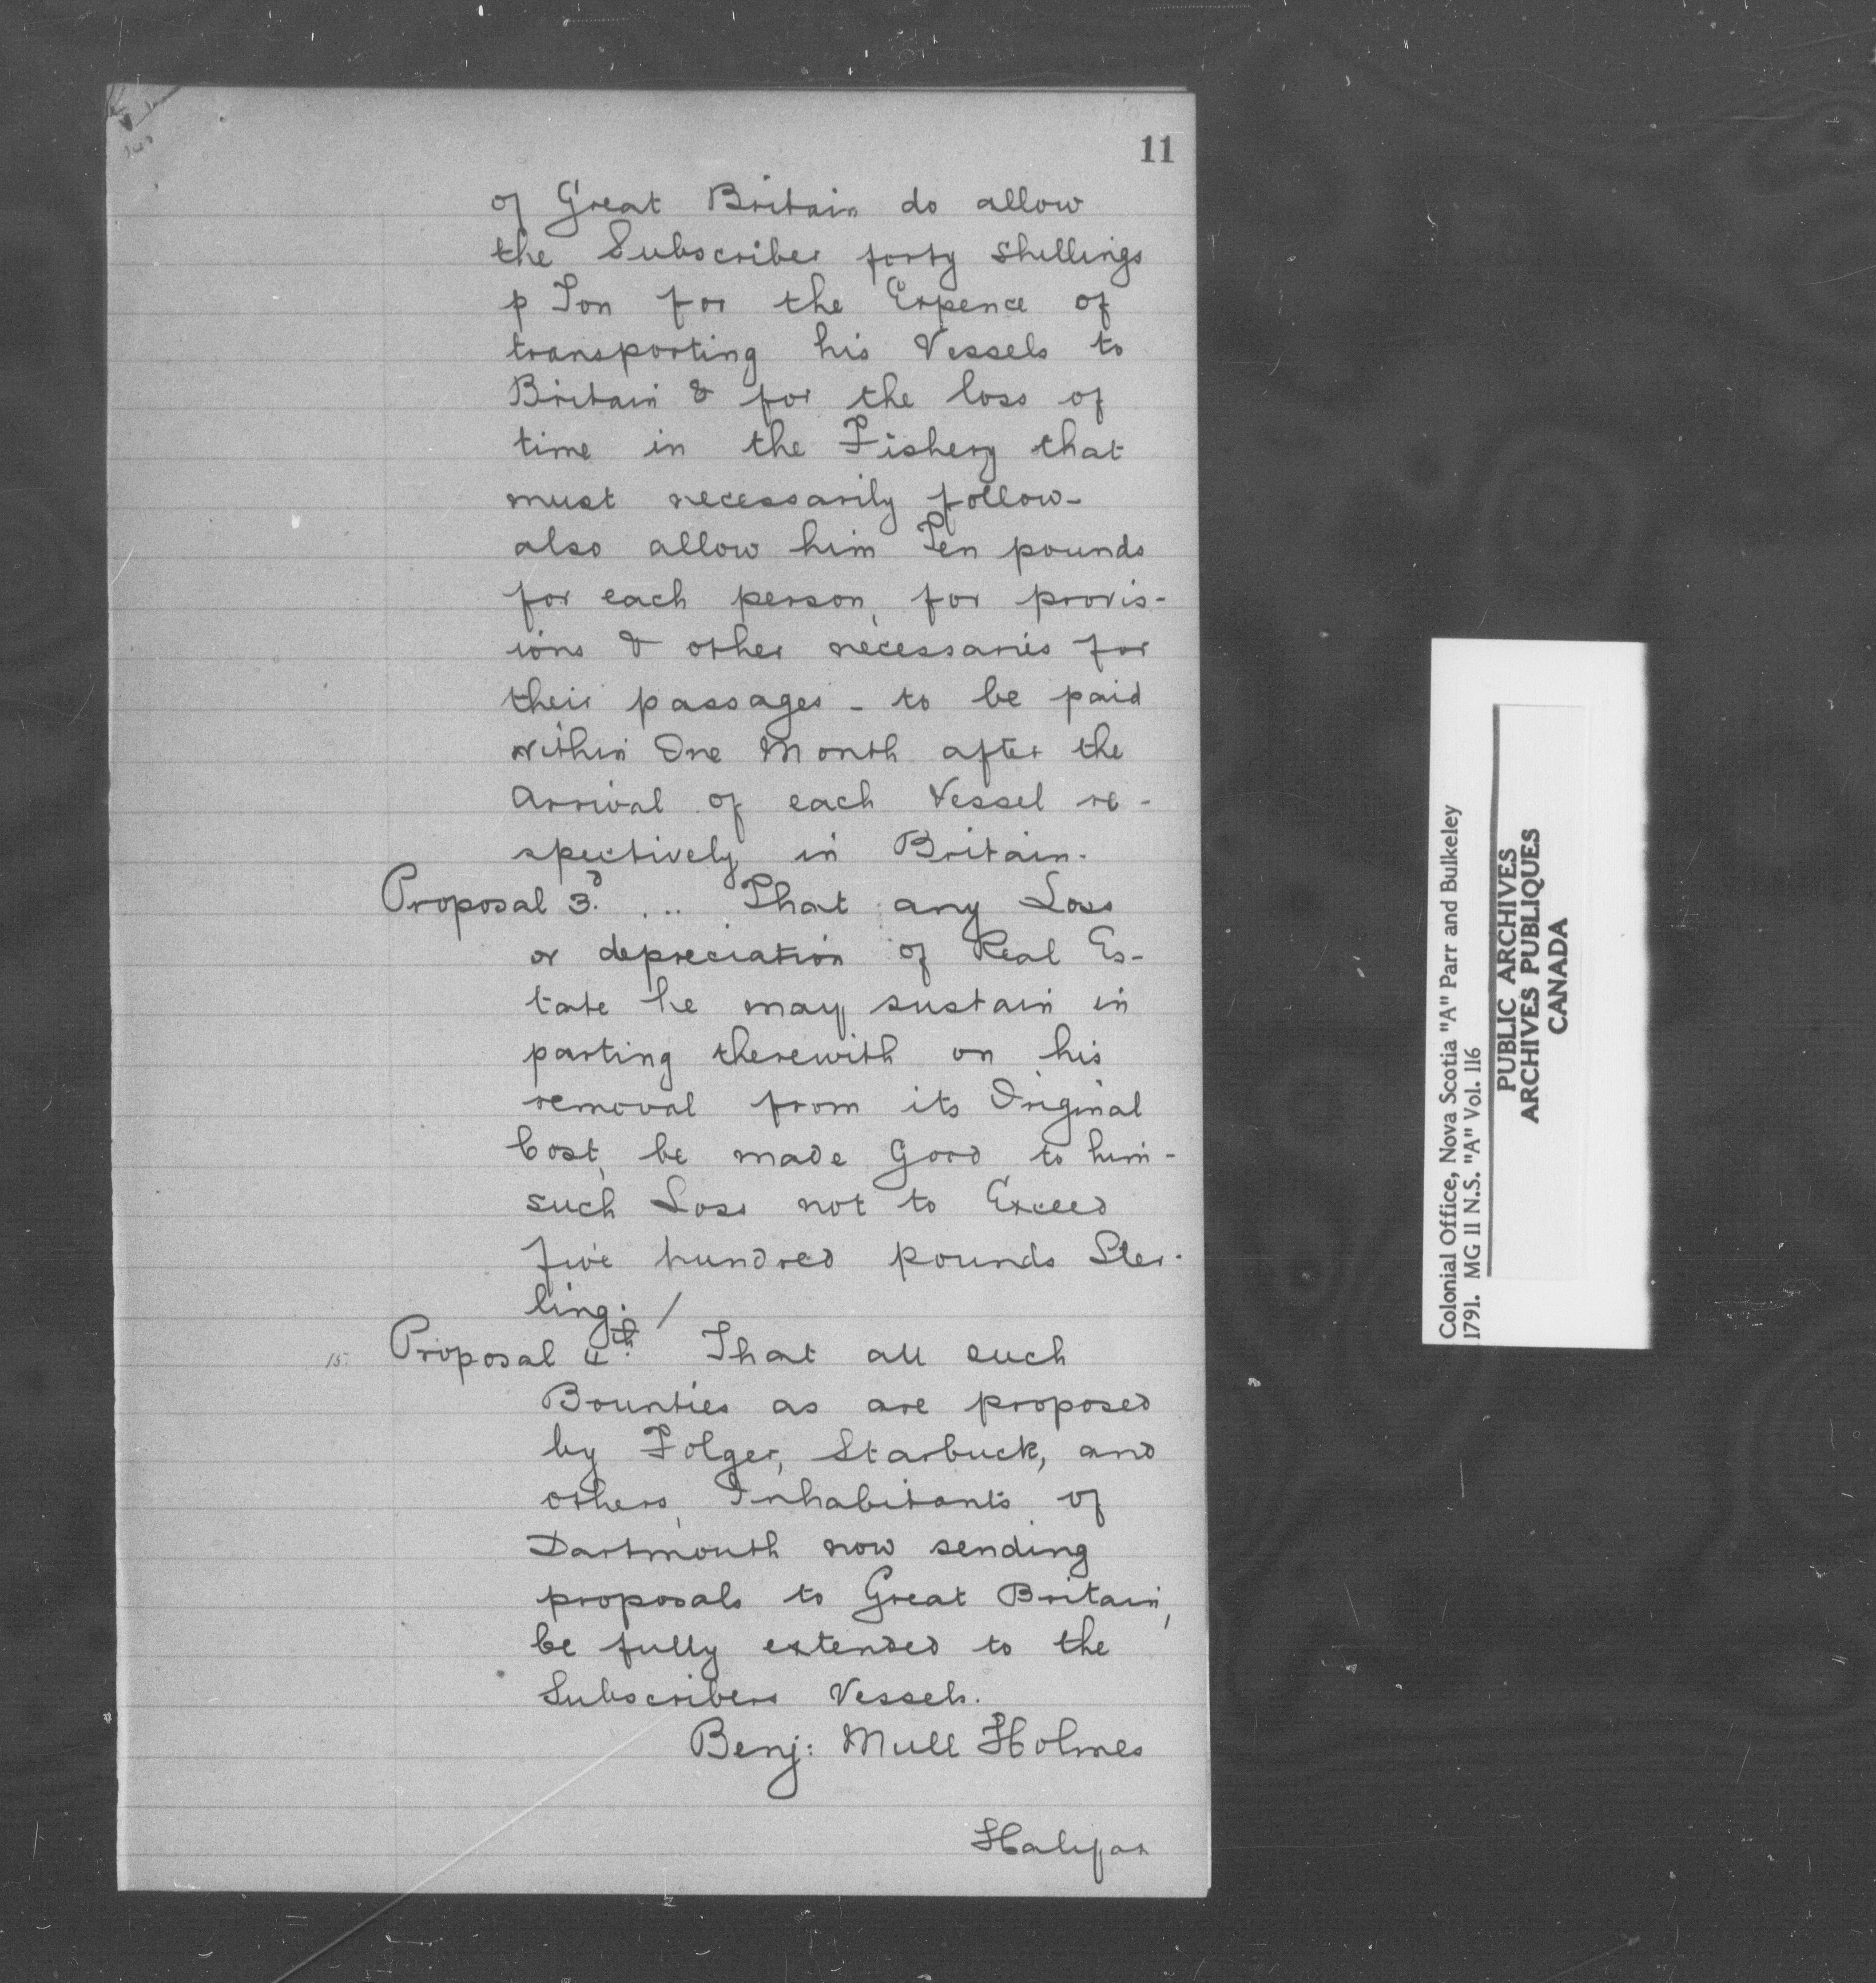 11
of Great Britain do allow
the Subscriber forty Shillings
p Ton for the Expence of
transporting his Vessels to
Britain & for the loss of
time in the Fishery that
must necessarily follow-
also allow him Ten pounds
for each person, for provis-
ions & other necessaries for
their passages - to be paid
within One Month after the
Arrival of each Vessel re-
spectively in Britain.
Proposal 3.d ... That any Loss
or depreciation of Real Es-
tate he may sustain in
parting therewith on his
removal from its Original
Cost, be made Good to him-
such Loss not to Exceed
five hundred pounds Ster-
ling. /
15. Proposal 4.th That all such
Bounties as are proposed
by Folger, Starbuck, and
others, Inhabitants of
Dartmouth now sending
proposals to Great Britain,
be fully extended to the
Subscribers Vessels.
Benj: Mull Holmes
Halifax
Colonial Office, Nova Scotia "A" Parr and Bulkeley
1791. MG 11 N.S. "A" Vol. 116
PUBLIC ARCHIVES
ARCHIVES PUBLIQUES
CANADA